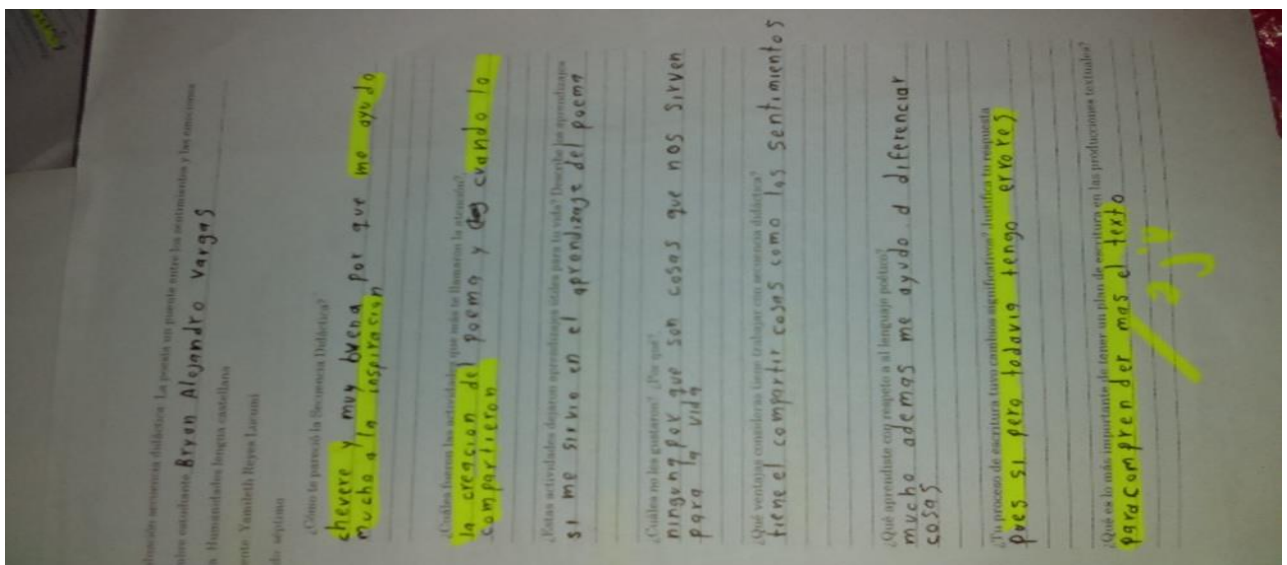 secuencia didáctica La poesía un puente entre los sentimientos y las emociones
estudiante Bryan Alejandro Vargas
Humanidades lengua castellana
Yamileth Reyes Lucumi
séptimo
¿Cómo te pareció la Secuencia Didáctica?
chevere y muy buena por que me ayudo
mucho a la inspirasion
¿Cuáles fueron las actividades que más te llamaron la atención?
la creacion del poema y cuando lo
compartieron
¿Estas actividades dejaron aprendizajes útiles para tu vida? Describe los aprendizajes
si me sirvio en el aprendizaje del poema
¿Cuáles no les gustaron? ¿Por qué?
ninguna por que son cosas que nos sirven
para la vida
¿Qué ventajas consideras tiene trabajar con secuencia didáctica?
tiene el compartir cosas como los sentimientos
¿Qué aprendiste con respeto a al lenguaje poético?
mucho ademas me ayudo d diferenciar
cosas
¿Tu proceso de escritura tuvo cambios significativos? Justifica tu respuesta
pues si pero todavia tengo errores
¿Qué es lo más importante de tener un plan de escritura en las producciones textuales?
para comprender mas el texto